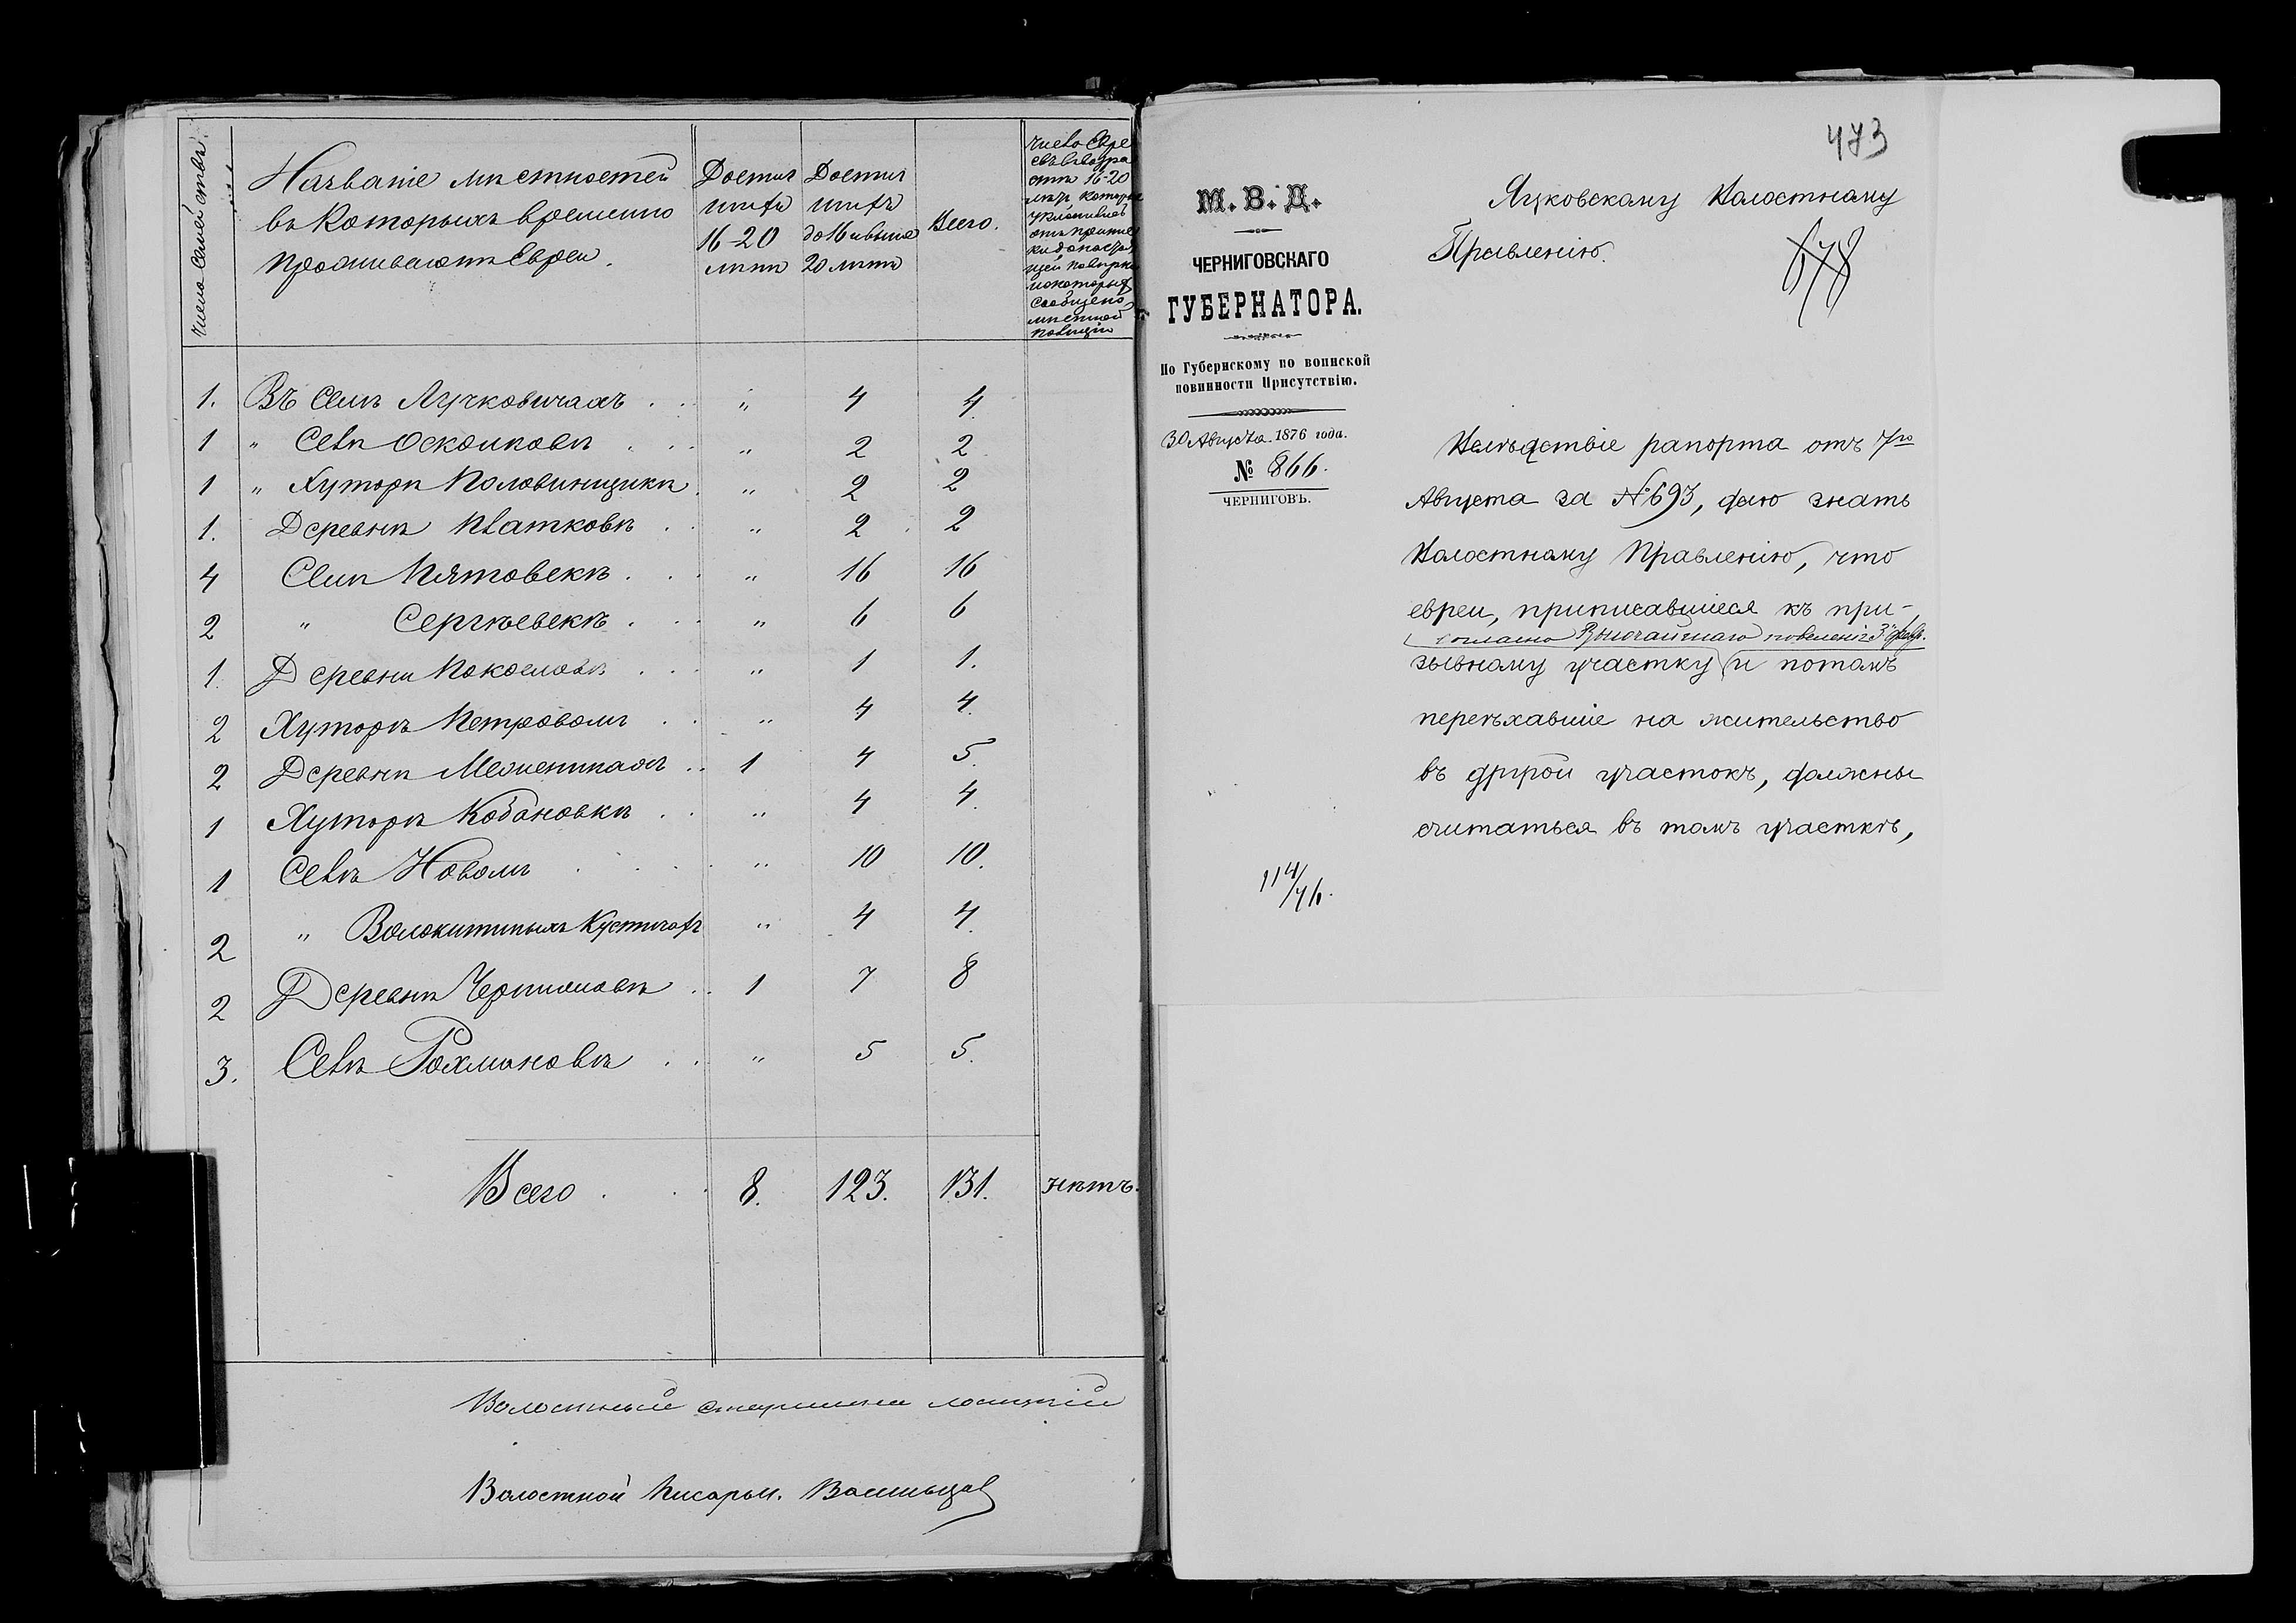 Число семействъ.
Названіе мѣстностей
въ которыхъ временно
проживаютъ Евреи.
Достиг
шихъ
16-20
лѣтъ
Достиг
шихъ
до 16 и выше
20 лѣтъ
Всего.
Число Евре
евъ въ возра
стѣ 16-20
лѣтъ, которые
уклонились
отъ припис
ки
повѣрки
и о которыхъ
сообщено
мѣстной
полиціи
1. Въ Селѣ Лучковичахъ . . " 4 4
1 " Селѣ Осколковѣ . . . " 2 2
1 " Хуторѣ Половинщикѣ . " 2 2
1. Деревнѣ Платковѣ . . " 2 2
4 Селѣ Пятовскѣ . . . " 16 16
2 " Сергѣевскѣ . . . " 6 6
1. Деревни Покословѣ . . . " 1 1.
2 Хуторѣ Петровомъ . . " 4 4.
2 Деревнѣ . . 1 4 5.
1 Хуторѣ Кобановкѣ . . " 4 4.
1 Селѣ Новомъ . . . " 10 10.
2 " Волокитиныхъ Кустичахъ " 4 4.
2 Деревнѣ . . 1 7 8
3. Селѣ Рохмановѣ . . " 5 5.
Всего . . . 8. 123. 131. нѣтъ.
Волостный старшина
Волостной Писарь
473
М. В. Д.
ЧЕРНИГОВСКАГО
ГУБЕРНАТОРА.
По Губернскому по воинской
повинности Присутствію.
30 Августа 1876 года.
№ 866.
ЧЕРНИГОВЪ.
114/76.
Яцковскому Волостному
Правленію.
678
Вслѣдствіе рапорта отъ 7го
Августа за № 693, даю знать
Волостному Правленію, что
евреи, приписавшіеся къ при-
согласно Высочайшаго повеленія 3го февр.
зывному участку и потомъ
переѣхавшіе на жительство
въ другой участокъ, должны
считаться въ томъ участкѣ,